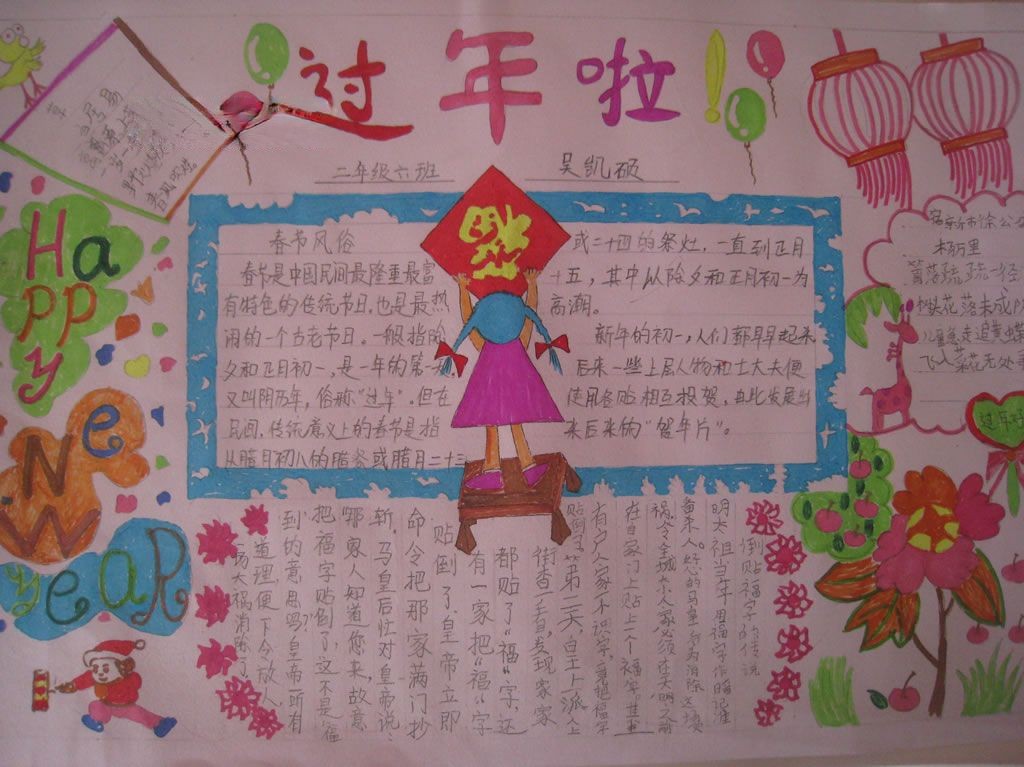 过年啦！
二年级六班 吴凯硕
春节风俗
春节是中国民间最隆重最富
有特色的传统节日,也是最热
闹的一个古老节日。一般指除
夕和正月初一,是一年的第一
又叫阴历年,俗称"过年"。但在
民间,传统意义上的春节是指
从腊月初八的腊祭或腊月二十三
或二十四的祭灶，一直到正月
十五，其中从除夕和正月初一为
高潮。
新年的初一,人们都早早起来
后来一些上层人物和士大夫便
使用各贴相互投贺，由此发展出
来后来的"贺年片"。
宿新市徐公
杨万里
篱落疏疏一径
树头花落未成
儿童急走追黄蝶
飞入菜花无处
过年
Happy
New
Year
倒贴福字的传说
明太祖当年用福字作暗记准
备杀人。好心的马皇后为消除这场
祸,令全城大小人家必须在天明之前
在自家门上贴上一个福字。其中
有户人家不识字,竟把福字
贴倒了。第二天,皇上派人上
街查看,发现家家
都贴了"福"字,还
有一家把"福"字
贴倒了。皇帝立即
命令把那家满门抄
斩。马皇后忙对皇帝说:
"那家人知道您来,故意
把福字贴倒了,这不是"福
到"的意思吗?"皇帝一听有
道理,便下令放人,
一场大祸消除了。